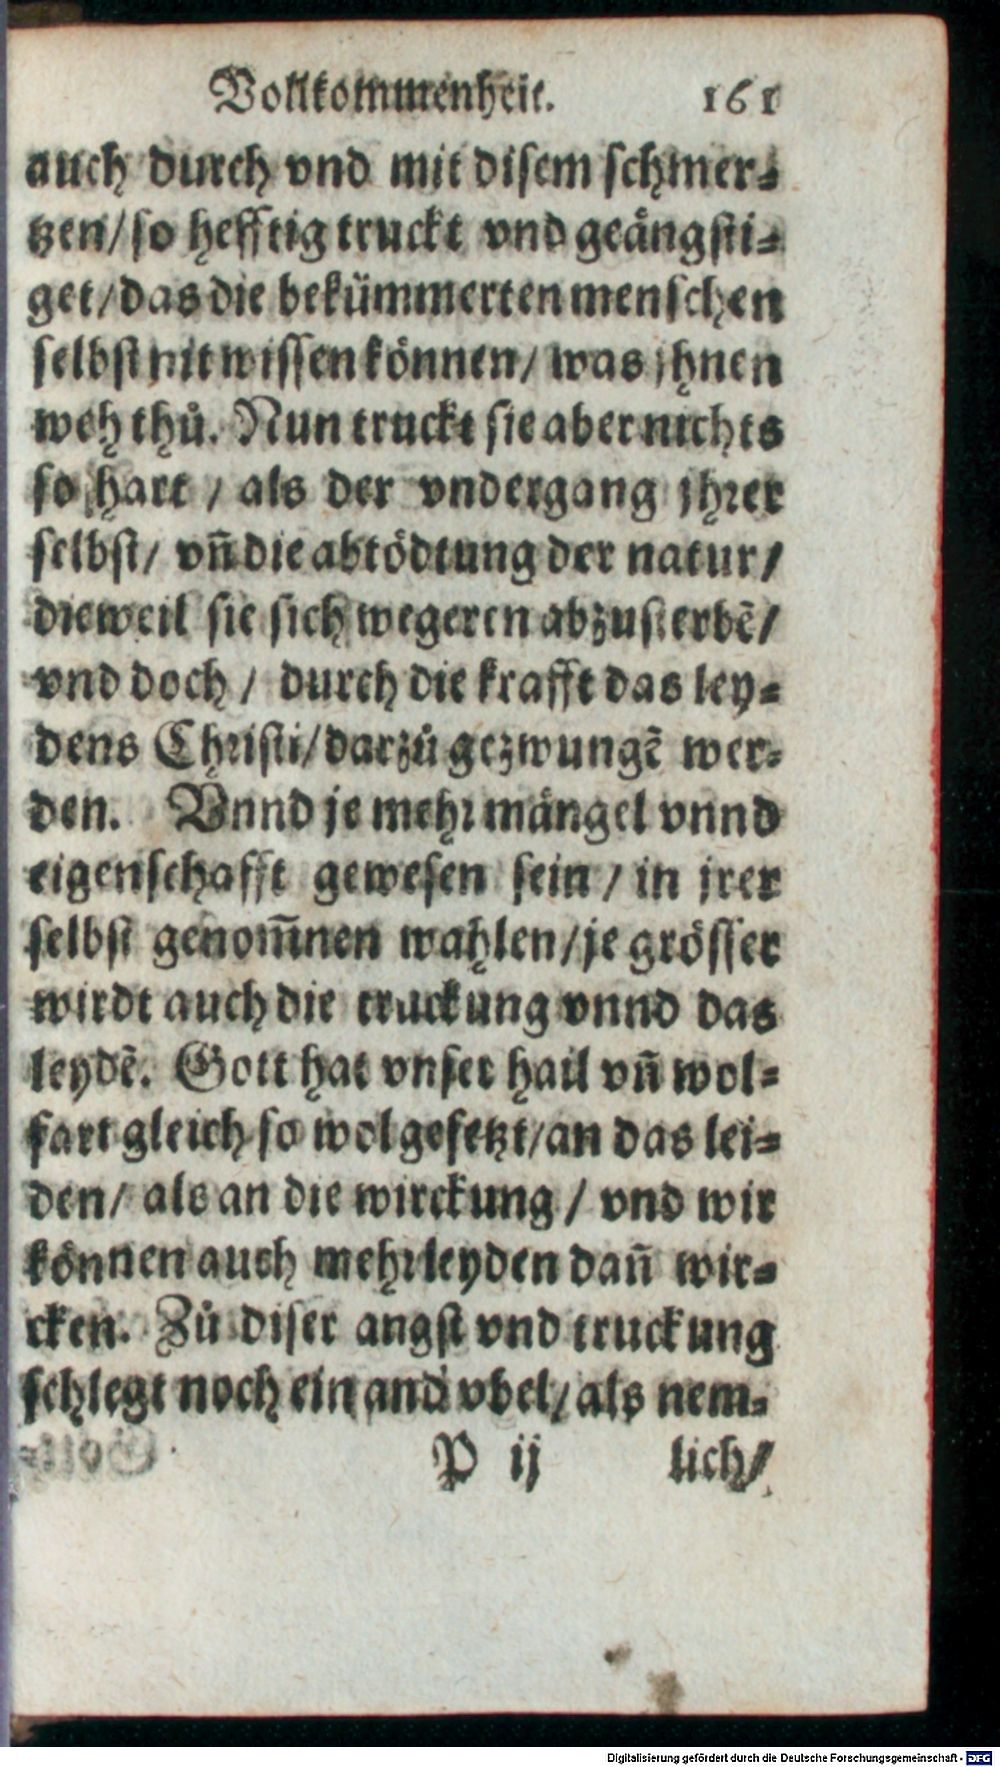 Vollkommenheit. 161
auch durch vnd mit disem schmer⸗
tzen/ so hefftig truckt vnd geängsti⸗
get/ das die bekümmerten menschen
selbst nit wissen können/ was jhnen
weh thů. Nun truckt sie aber nichts
so hart / als der vndergang jhrer
selbst/ vn̄ die abtödtung der natur/
dieweil sie sich wegeren abzusterbē/
vnd doch / durch die krafft das ley⸗
dens Christi/ darzů gezwungē wer⸗
den. Vnnd je mehr mängel vnnd
eigenschafft gewesen sein / in jrer
selbst genom̄nen wahlen/ je grösser
wirdt auch die truckung vnnd das
leydē. Gott hat vnser hail vn̄ wol⸗
fart gleich so wol gesetzt/ an das lei⸗
den/ als an die wirckung / vnd wir
können auch mehr leyden dan̄ wir⸗
cken. Zů diser angst vnd truckung
schlegt noch ein and vbel/ als nem⸗
P ij lich/
Digitalisierung gefördert durch die Deutsche Forschungsgemeinschaft - DFG